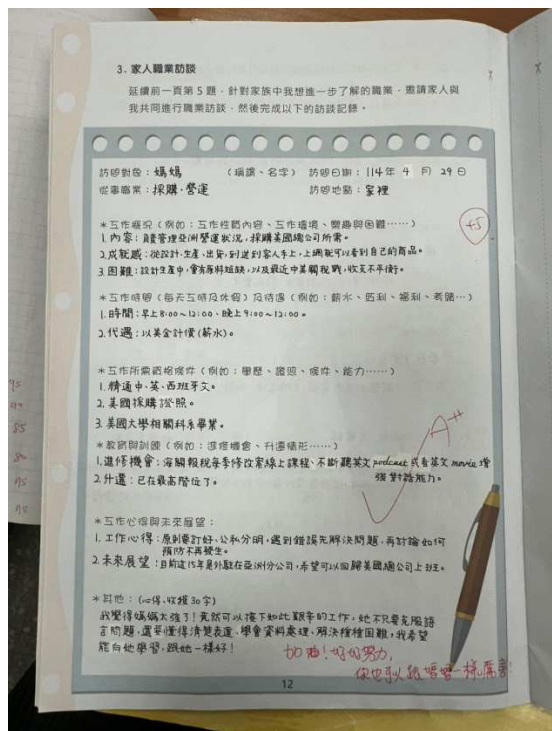 3. 家人職業訪談
延續前一頁第 5 題，針對家族中我想進一步了解的職業，邀請家人與
我共同進行職業訪談，然後完成以下的訪談記錄。
訪問對象：媽媽 （稱謂、名字） 訪問日期：114年 4 月 29 日
從事職業：採購、營運 訪問地點：家裡
*工作概況（例如：工作性質內容、工作環境、樂趣與困難……）
1. 內容：負責管理亞洲營運狀況，採購美國總公司所需。
2. 成就感：從設計、生產、出貨，到送到客人手上，上網就可以看到自己的商品。
3. 困難：設計生產中，會有原料短缺，以及最近中美關稅戰，收支不平衡。
+5
*工作時間（每天工時及休假）及待遇（例如：薪水、紅利、福利、考績…）
1. 時間：早上8:00~12:00、晚上9:00~12:00。
2. 代遇：以美金計價(薪水)。
*工作所需資格條件（例如：學歷、證照、條件、能力……）
1. 精通中、英、西班牙文。
2. 美國採購證照。
3. 美國大學相關科系畢業。
*教育與訓練（例如：進修機會、升遷情形……）
1. 進修機會：海關報稅每季修改案線上課程、不斷聽英文 podcast 或看英文 movie 增
強對話能力。
2. 升遷：已在最高階位了。
A+
*工作心得與未來展望：
1. 工作心得：原則要訂好、公私分明，遇到錯誤先解決問題，再討論如何
預防不再發生。
2. 未來展望：目前這15年是外駐在亞洲分公司，希望可以回歸美國總公司上班。
*其他：（心得、收獲30字）
我覺得媽媽太強了！竟然可以接下如此艱辛的工作，她不只要克服語
言問題，還要懂得清楚表達、學會資料處理、解決種種困難，我希望
能向她學習，跟她一樣好！
加油！好好努力，
你也可以跟媽媽一樣厲害！
12
85